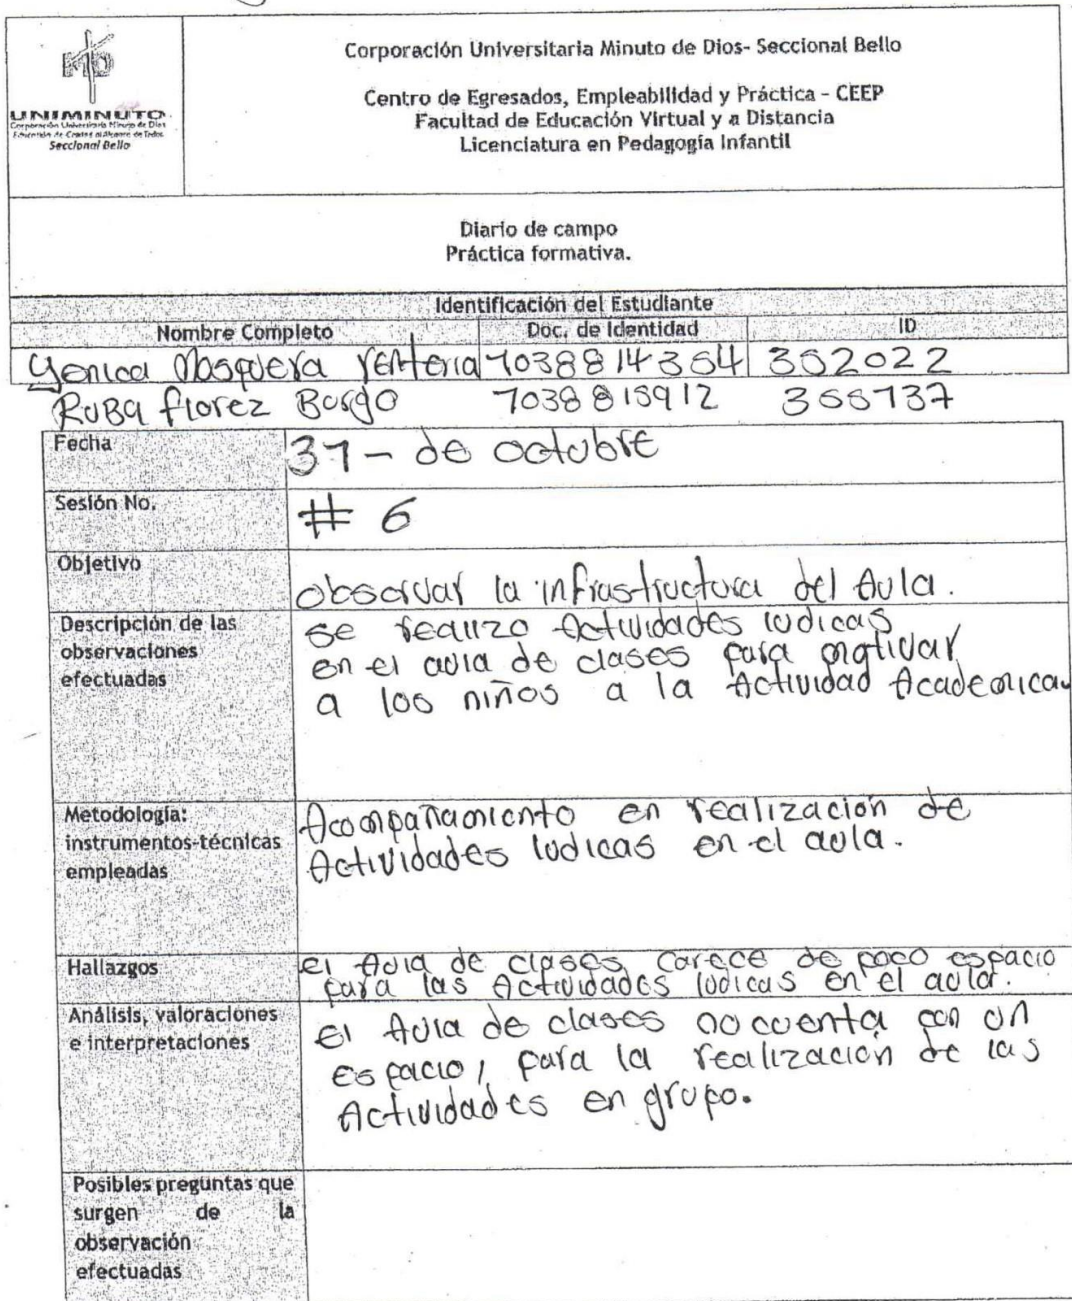 UNIMINUTO
Corporación Universitaria Minuto de Dios
Educación de Calidad al Alcance de Todos
Seccional Bello
Corporación Universitaria Minuto de Dios- Seccional Bello
Centro de Egresados, Empleabilidad y Práctica - CEEP
Facultad de Educación Virtual y a Distancia
Licenciatura en Pedagogía Infantil
Diario de campo
Práctica formativa.
Identificación del Estudiante
Nombre Completo Doc. de Identidad ID
Yenica Mosquera Renteria 1038814354 352022
RUBA florez Borgo 1038815912 355137
Fecha 31- de octubre
Sesión No. # 6
Objetivo observar la infrastructura del Aula.
Descripción de las observaciones efectuadas
se realizo Actividades ludicas
en el aula de clases para motivar
a los niños a la Actividad Academica.
Metodología: instrumentos-técnicas empleadas
Acompañamiento en realización de
Actividades ludicas en el aula.
Hallazgos
el Aula de clases carece de poco espacio
para las Actividades ludicas en el aula.
Análisis, valoraciones e interpretaciones
el Aula de clases no cuenta con un
espacio, para la realización de las
Actividades en grupo.
Posibles preguntas que
surgen de la
observación
efectuadas